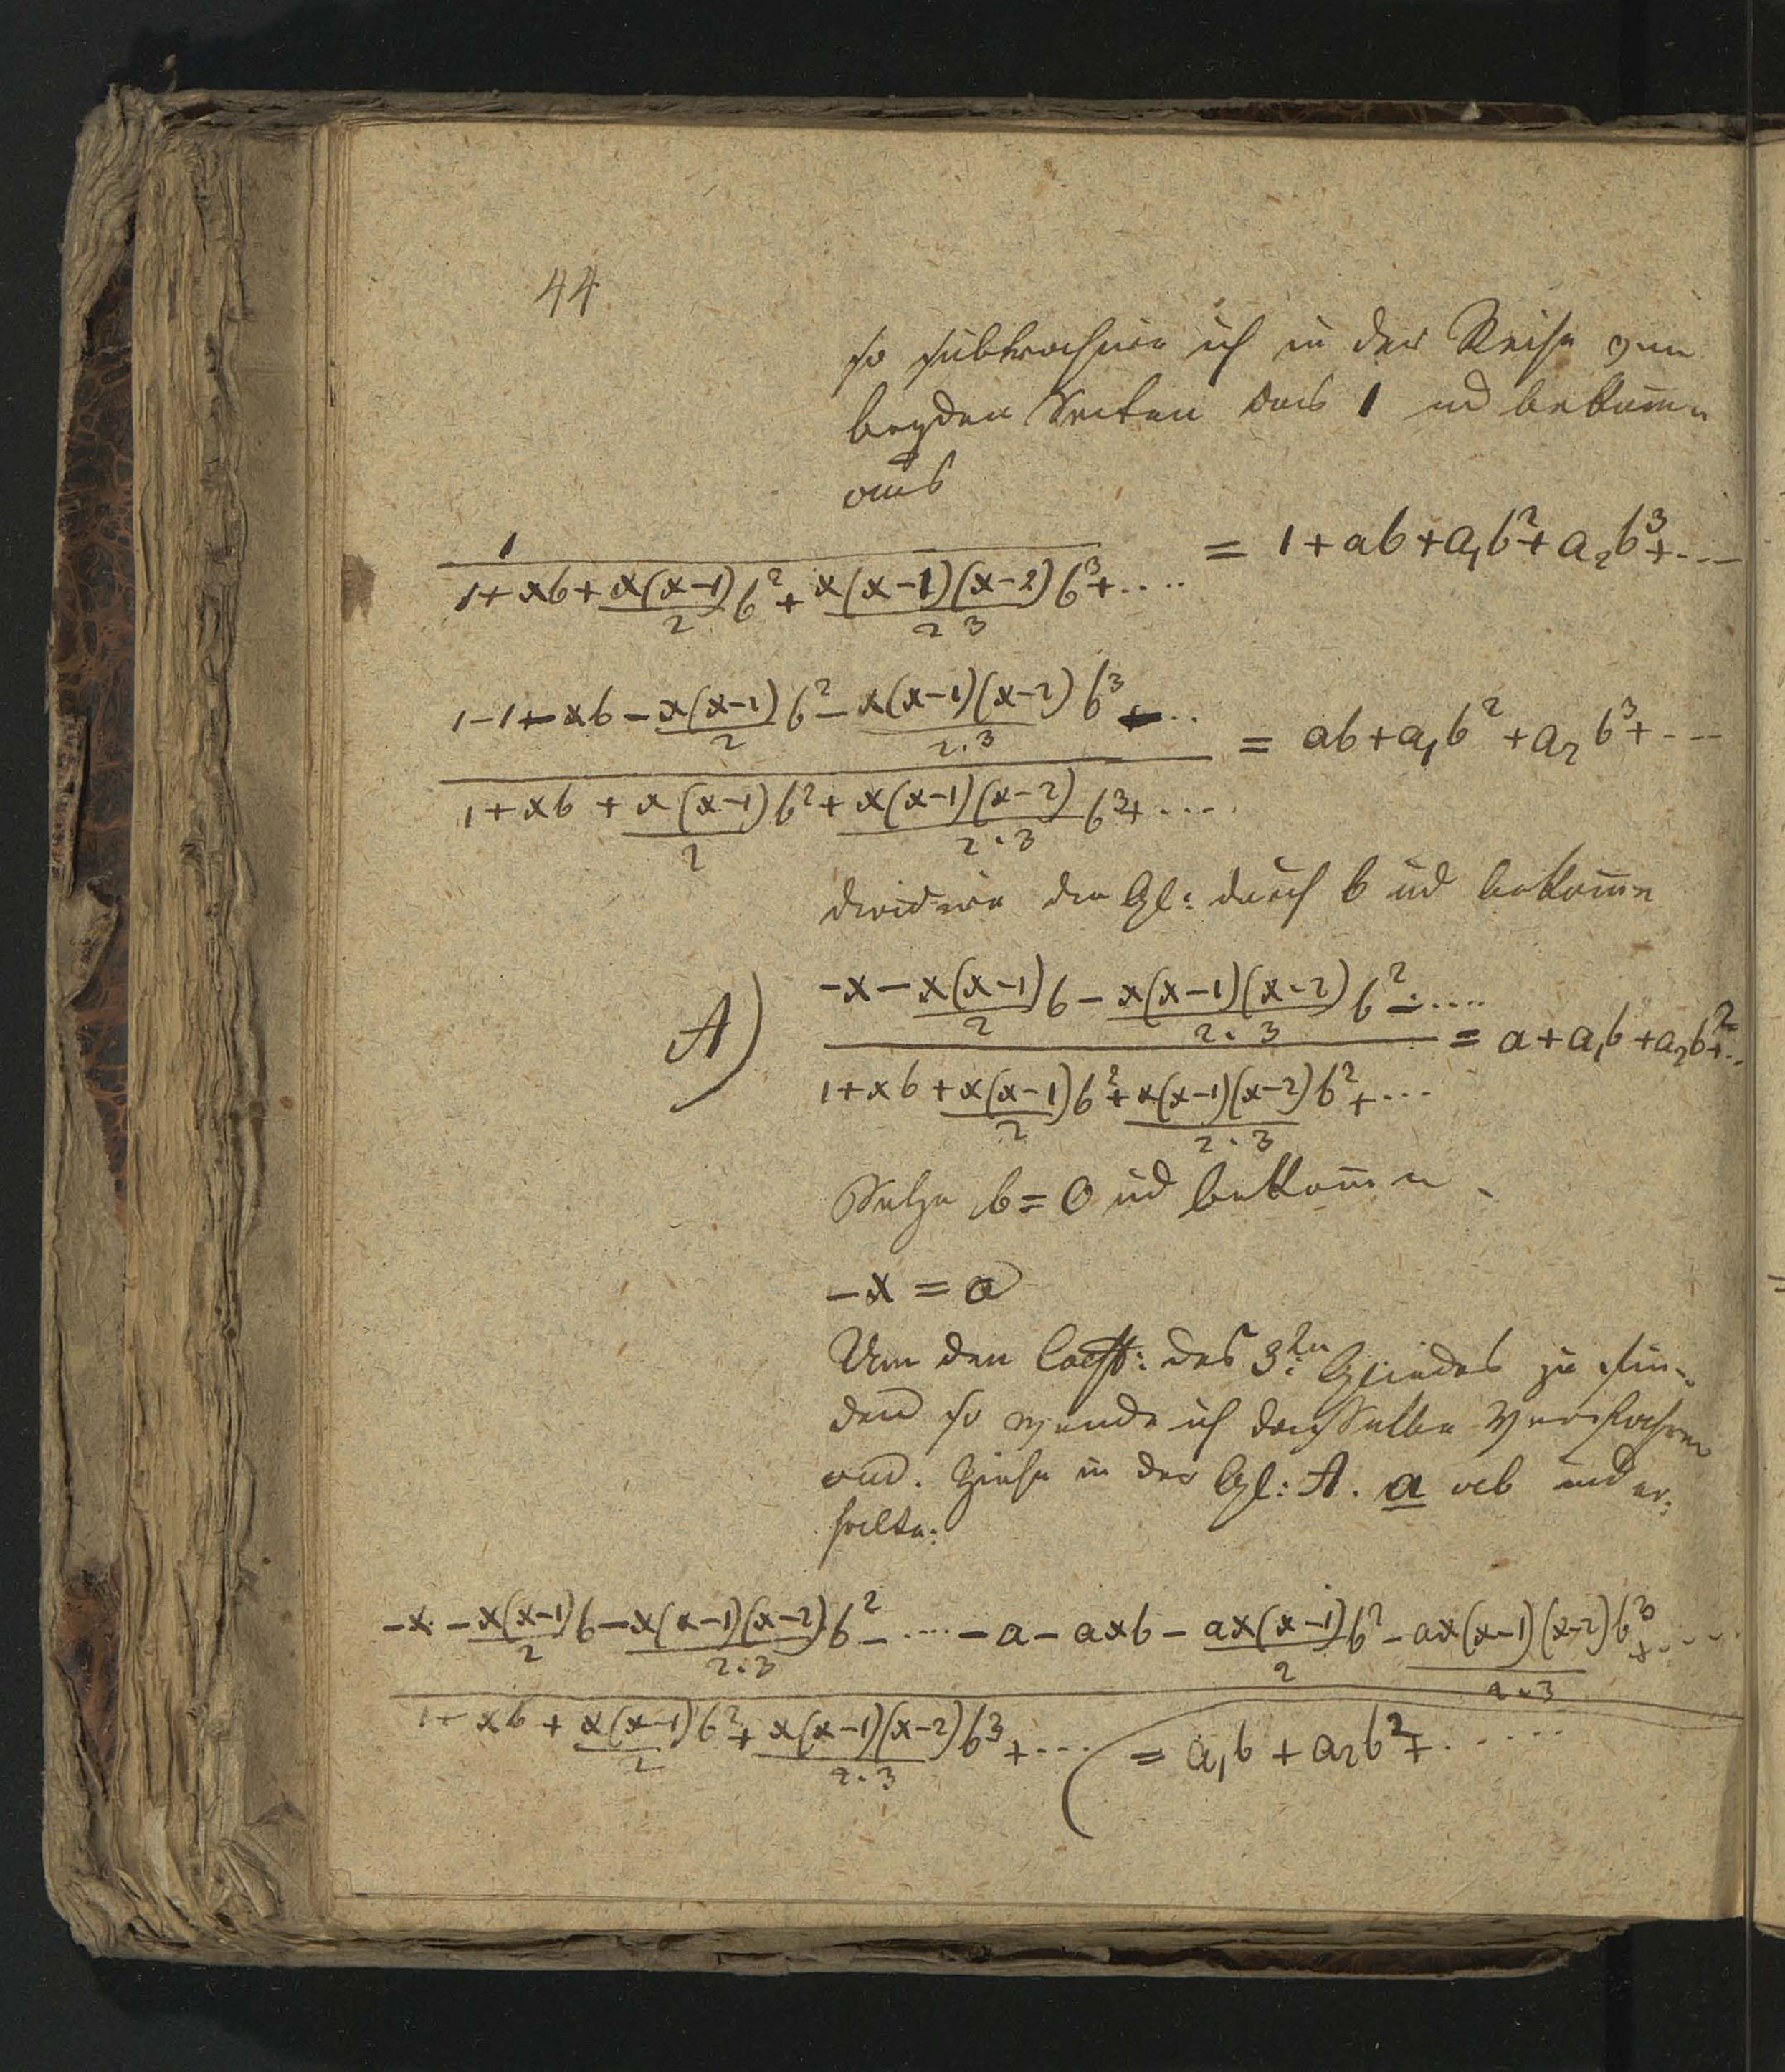 44
so subtrahire ich in der Reihe von
beyden Seiten das 1 ud bekom̄e
aus
1/(1+xb+x(x-1)/2 b²+x(x-1)(x-2)/2 3 b³+....) = 1+ab+a₁b²+a₂b³+....
(1-1-xb-x(x-1)/2 b²-x(x-1)(x-2)/2.3 b³-...)/(1+xb+x(x-1)/2 b²+x(x-1)(x-2)/2.3 b³+....) = ab+a₁b²+a₂b³+....
dividire die Gl: durch b ud bekom̄e
A) (-x-x(x-1)/2 b-x(x-1)(x-2)/2.3 b²-....)/(1+xb+x(x-1)/2 b²+x(x-1)(x-2)/2.3 b²+...) = a+a₁b+a₂b²+..
Setze b=0 ud bekom̄e
-x = a
Um den Coeff: des 3ten Gliedes zu fin-
den so wende ich dasselbe Verfahren
an. Ziehe in der Gl: A. a ab und er:
halte:
(-x-x(x-1)/2 b-x(x-1)(x-2)/2.3 b²-....-a-axb-ax(x-1)/2 b²-ax(x-1)(x-2)/2.3 b³+....)/(1+xb+x(x-1)/2 b²+x(x-1)(x-2)/2.3 b³+....)
= a₁b+a₂b²+......